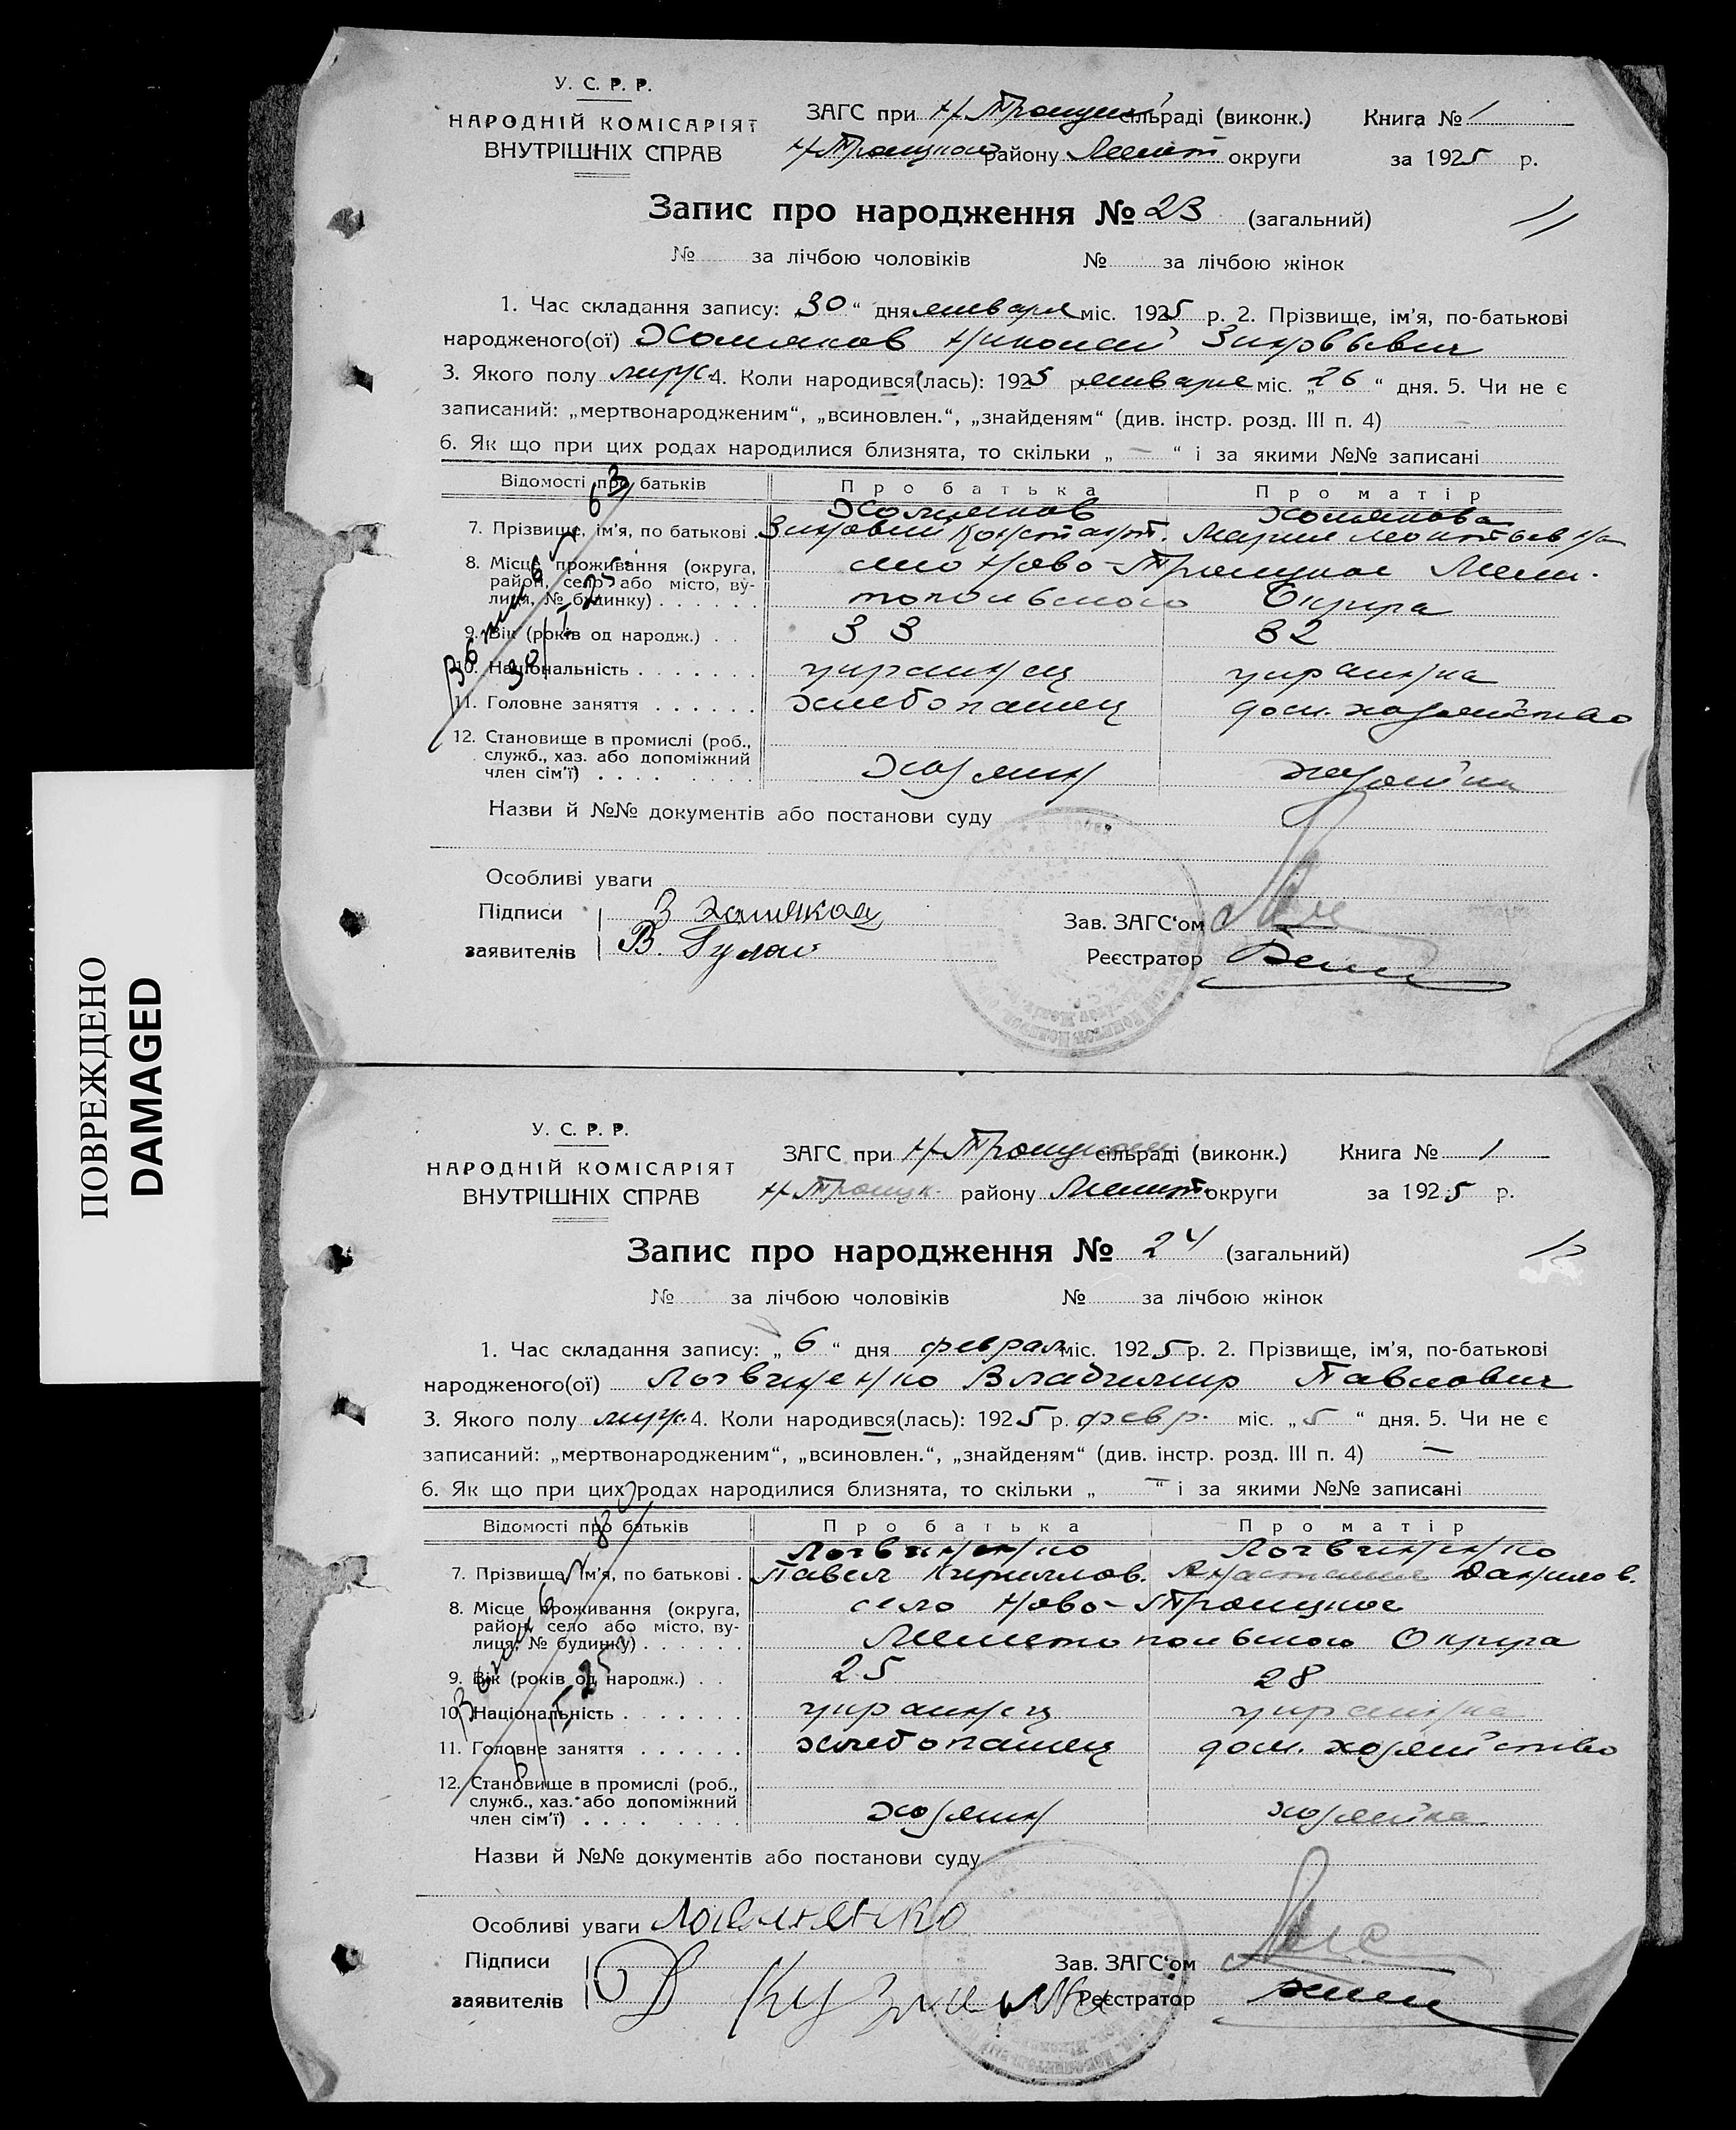 ПОВРЕЖДЕНО
DAMAGED
У. С. Р. Р.
НАРОДНІЙ КОМІСАРІЯТ
ВНУТРІШНІХ СПРАВ
ЗАГС при Н-Троицкой сільраді (виконк.) Книга № 1
Н-Троицкого району Мелит округи за 1925 р.
Запис про народження № 23 (загальний)
11
№ за лічбою чоловіків № за лічбою жінок
1. Час складання запису: „30“ дня января міс. 1925 р. 2. Прізвище, ім'я, по-батькові
народженого(ої) Хомяков Николай Зиновьевич
3. Якого полу муж. 4. Коли народився(лась): 1925 р. января міс. „26“ дня. 5. Чи не є
записаний: „мертвонародженим“, „всиновлен.“, „знайденям“ (див. інстр. розд. III п. 4) —
6. Як що при цих родах народилися близнята, то скільки „ — “ і за якими №№ записані
Відомості про батьків Про батька Про матір
Хомяков Хомякова
7. Прізвище, ім'я, по батькові . Зиновий Констант. Мария Леонтьевна
8. Місце проживання (округа, район, село або місто, вулиця, № будинку) . . . . . . село Ново-Троицкое Мели-
топольского Округа
9. Вік (років од народж.) . . 33 32
10. Національність . . . . . . . украинец украинка
11. Головне заняття . . . . . . хлебопашец дом. хозяйство
12. Становище в промислі (роб.,
служб., хаз. або допоміжний
член сім'ї) . . . . . . . . хозяин хозяйка
Назви й №№ документів або постанови суду
Особливі уваги
Підписи З Хомяков Зав. ЗАГС'ом
заявителів В. Гулай Реєстратор
У. С. Р. Р.
НАРОДНІЙ КОМІСАРІЯТ
ВНУТРІШНІХ СПРАВ
ЗАГС при Н-Троицкой сільраді (виконк.) Книга № 1
Н-Троицк. району Мелит. округи за 1925 р.
Запис про народження № 24 (загальний)
12
№ за лічбою чоловіків № за лічбою жінок
1. Час складання запису: „6“ дня феврал міс. 1925 р. 2. Прізвище, ім'я, по-батькові
народженого(ої) Логвиненко Владимир Павлович
3. Якого полу муж. 4. Коли народився(лась): 1925 р. февр. міс. „5“ дня. 5. Чи не є
записаний: „мертвонародженим“, „всиновлен.“, „знайденям“ (див. інстр. розд. III п. 4) —
6. Як що при цих родах народилися близнята, то скільки „ — “ і за якими №№ записані
Відомості про батьків Про батька Про матір
Логвиненко Логвиненко
7. Прізвище, ім'я, по батькові . Павел Кириллов. Анастасия Данилов.
8. Місце проживання (округа,
район, село або місто, вулиця, № будинку) . . . . . . село Ново-Троицкое
Мелитопольского Округа
9. Вік (років од народж.) . . 25 28
10. Національність . . . . . . . украинец украинка
11. Головне заняття . . . . . . хлебопашец дом. хозяйство
12. Становище в промислі (роб.,
служб., хаз. або допоміжний
член сім'ї) . . . . . . . . хозяин хозяйка
Назви й №№ документів або постанови суду
Особливі уваги
Підписи Зав. ЗАГС'ом
заявителів Реєстратор